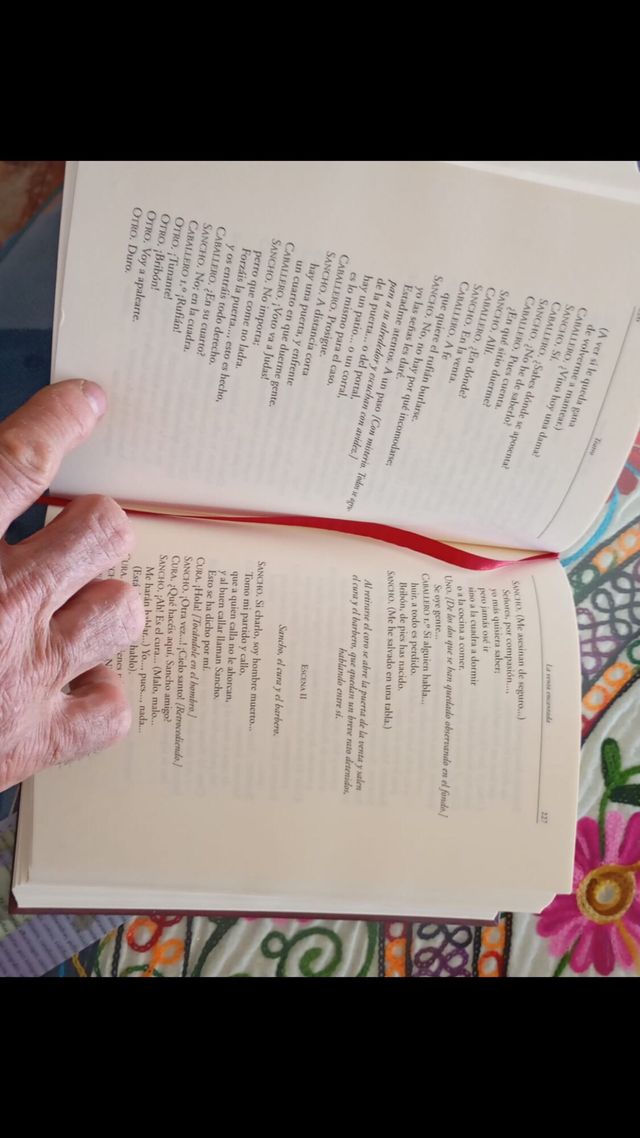 Teatro
(A ver si le queda gana
de volverme a mantear.)
CABALLERO. ¿Vino hoy una dama?
SANCHO. Sí.
CABALLERO. ¿Sabes dónde se aposenta?
SANCHO. ¿No he de saberlo?
CABALLERO. Pues cuenta.
¿En qué sitio duerme?
SANCHO. Allí.
CABALLERO. ¿En dónde?
SANCHO. En la venta.
CABALLERO. A fe
que quiere el rufián burlarse.
SANCHO. No, no hay por qué incomodarse;
yo las señas les daré.
Estadme atentos. A un paso [Con misterio. Todo se agru-
pan a su alrededor y escuchan con avidez.]
de la puerta... o del portal,
hay un patio... o un corral,
es lo mismo para el caso.
CABALLERO. Prosigue.
SANCHO. A distancia corta
hay una puerta, y enfrente
un cuarto en que duerme gente.
CABALLERO. ¡Voto va a Judas!
SANCHO. No importa;
perro que come no ladra.
Forzáis la puerta... esto es hecho,
y os entráis todo derecho.
CABALLERO. ¿En su cuarto?
SANCHO. No; en la cuadra.
CABALLERO 1.º ¡Rufián!
OTRO. ¡Tunante!
OTRO. ¡Bribón!
OTRO. Voy a apalearte.
OTRO. Duro.
La venta encantada
227
SANCHO. (Me asesinan de seguro...)
Señores, por compasión...,
yo más quisiera saber;
pero jamás osé ir
sino a la cuadra a dormir
o a la cocina a comer.
UNO. [De los dos que se han quedado observando en el fondo.]
Se oye gente...
CABALLERO 1.º Si alguien habla...
huir, a todo es perdido.
Bribón, de pies has nacido.
SANCHO. (Me he salvado en una tabla.)
Al retirarse el coro se abre la puerta de la venta y salen
el cura y el barbero, que quedan un breve rato detenidos,
hablando entre sí.
ESCENA II
Sancho, el cura y el barbero.
SANCHO. Si charlo, soy hombre muerto...
Tomo mi partido y callo,
que a quien calla no le ahorcan,
y al buen callar llaman Sancho.
Esto se ha dicho por mí.
CURA. ¡Hola! [Tocándole en el hombro.]
SANCHO. ¡Otra vez... ¡Cielo santo! [Retrocediendo.]
CURA. ¿Qué hacéis aquí, Sancho amigo?
SANCHO. ¡Ah! Es el cura... (Malo, malo...
Me harán hablar...) Yo... pues... nada...
(Está hablo).
CURA.